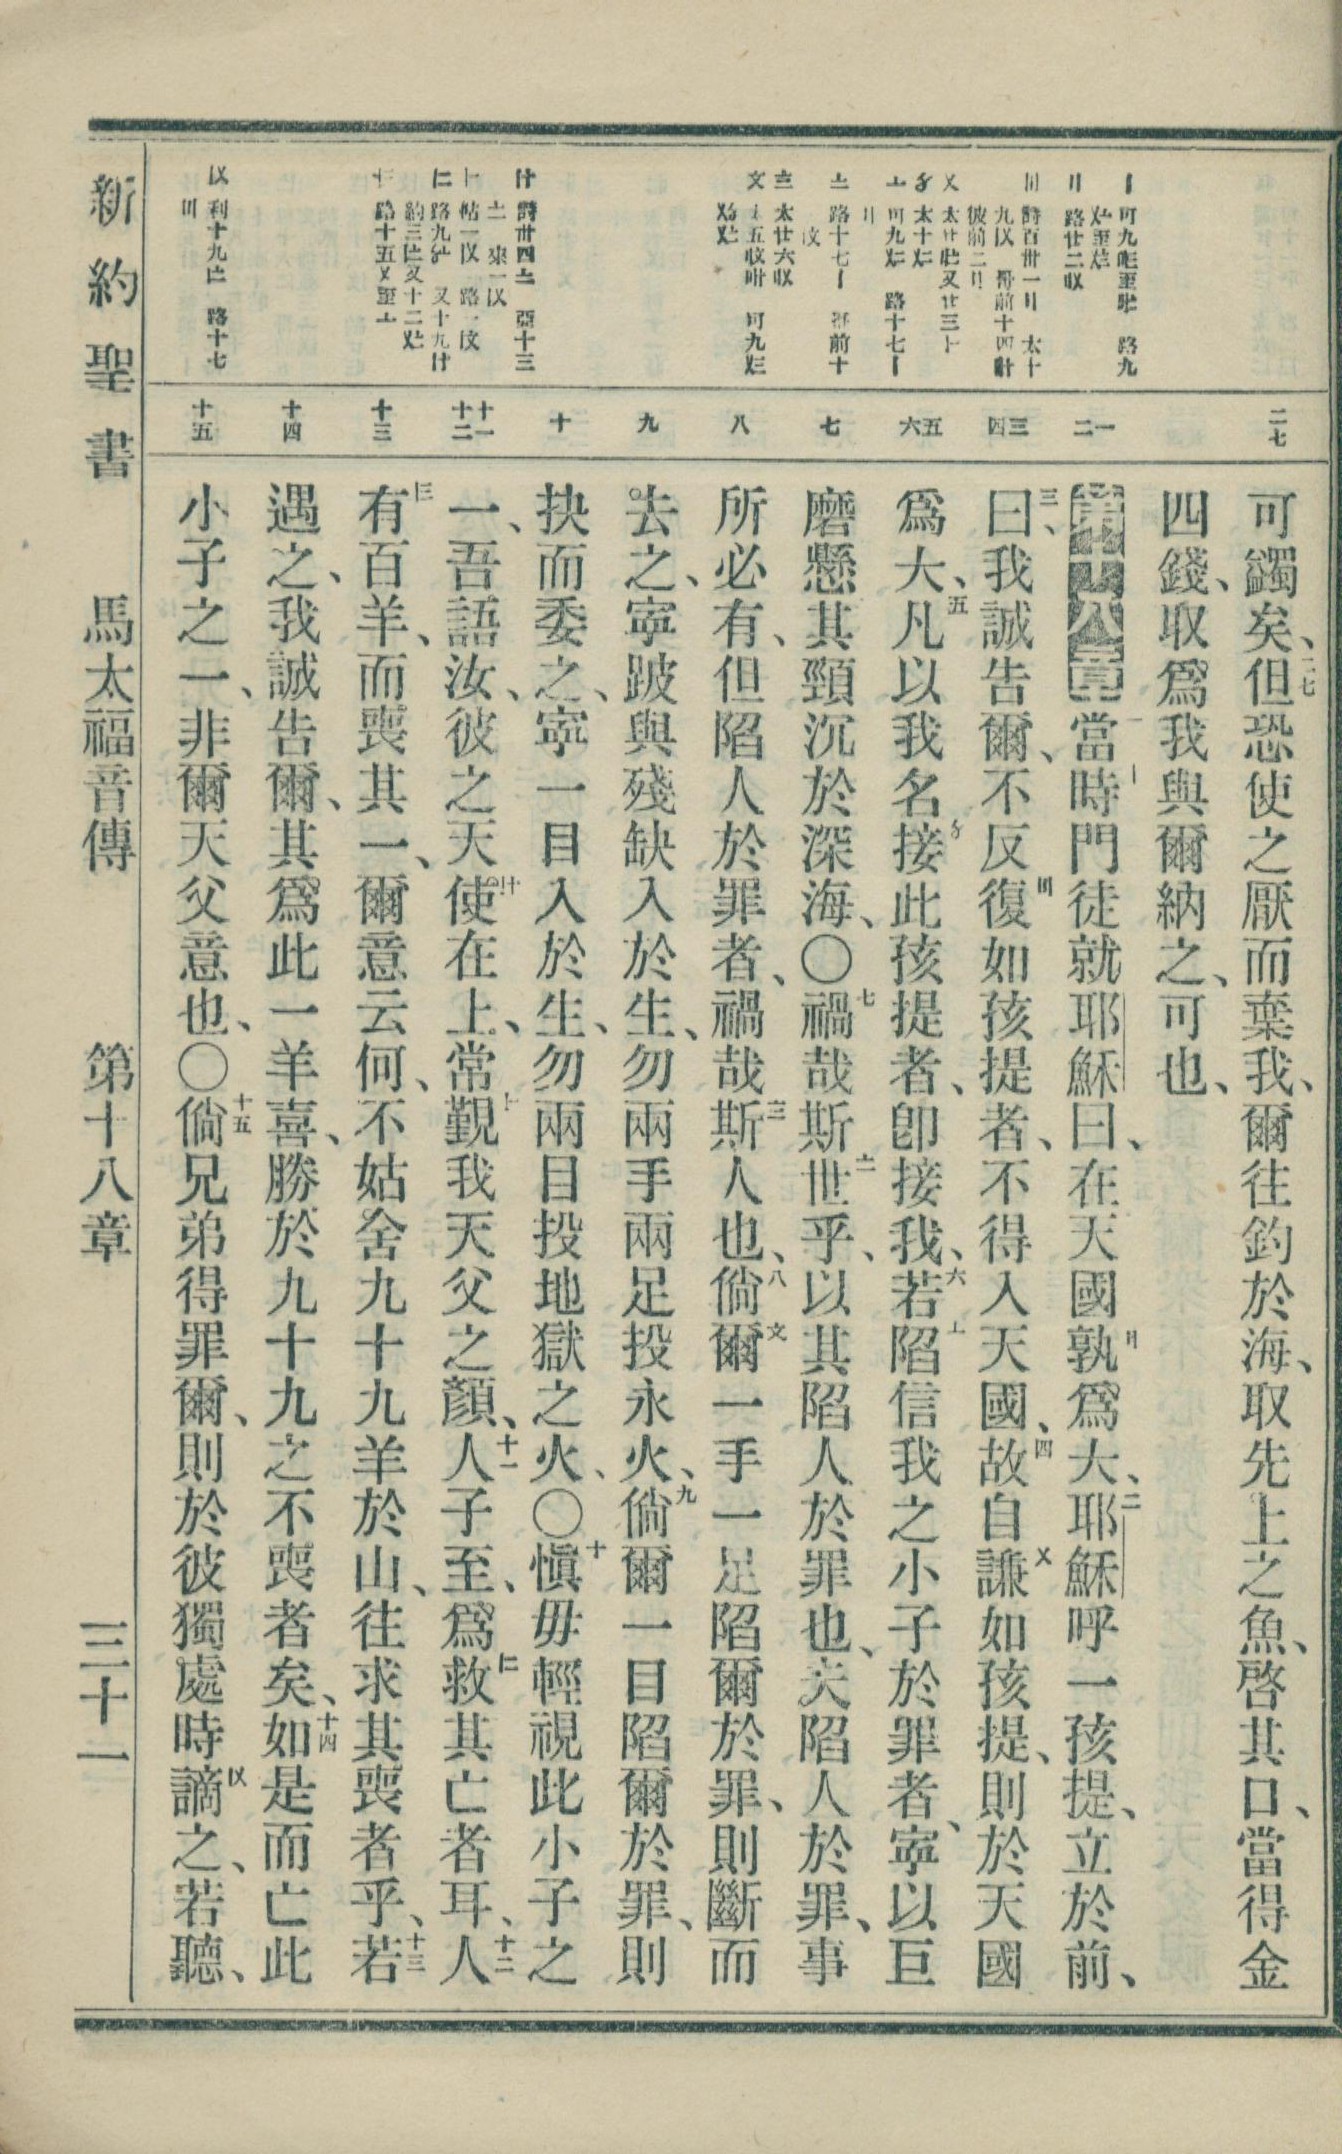 可蠲矣、二七但恐使之厭而棄我、爾往釣於海、取先上之魚、啓其口、當得金
四錢、取爲我與爾納之、可也、
第十八章一當時門徒就耶穌曰、在天國孰爲大、二耶穌呼一孩提、立於前、
三曰、我誠告爾、不反復如孩提者、不得入天國、四故自謙如孩提、則於天國
爲大、五凡以我名接此孩提者、卽接我、六若陷信我之小子於罪者、寧以巨
磨懸其頸沉於深海、〇七禍哉斯世乎、以其陷人於罪也、夫陷人於罪、事
所必有、但陷人於罪者、禍哉斯人也、八倘爾一手一足陷爾於罪、則斷而
去之、寧跛與殘缺入於生、勿兩手兩足投永火、九倘爾一目陷爾於罪、則
抉而委之、寧一目入於生、勿兩目投地獄之火、〇十愼毋輕視此小子之
一、吾語汝、彼之天使在上、常覲我天父之顏、十一人子至、爲救其亡者耳、十二人
有百羊、而喪其一、爾意云何、不姑舍九十九羊於山、往求其喪者乎、十三若
遇之、我誠告爾、其爲此一羊喜、勝於九十九之不喪者矣、十四如是而亡此
小子之一、非爾天父意也、〇十五倘兄弟得罪爾、則於彼獨處時謫之、若聽、
二七
一二
三四
五六
七
八
九
十
十一十二
十三
十四
十五
新約聖書 馬太福音傳 第十八章 三十一